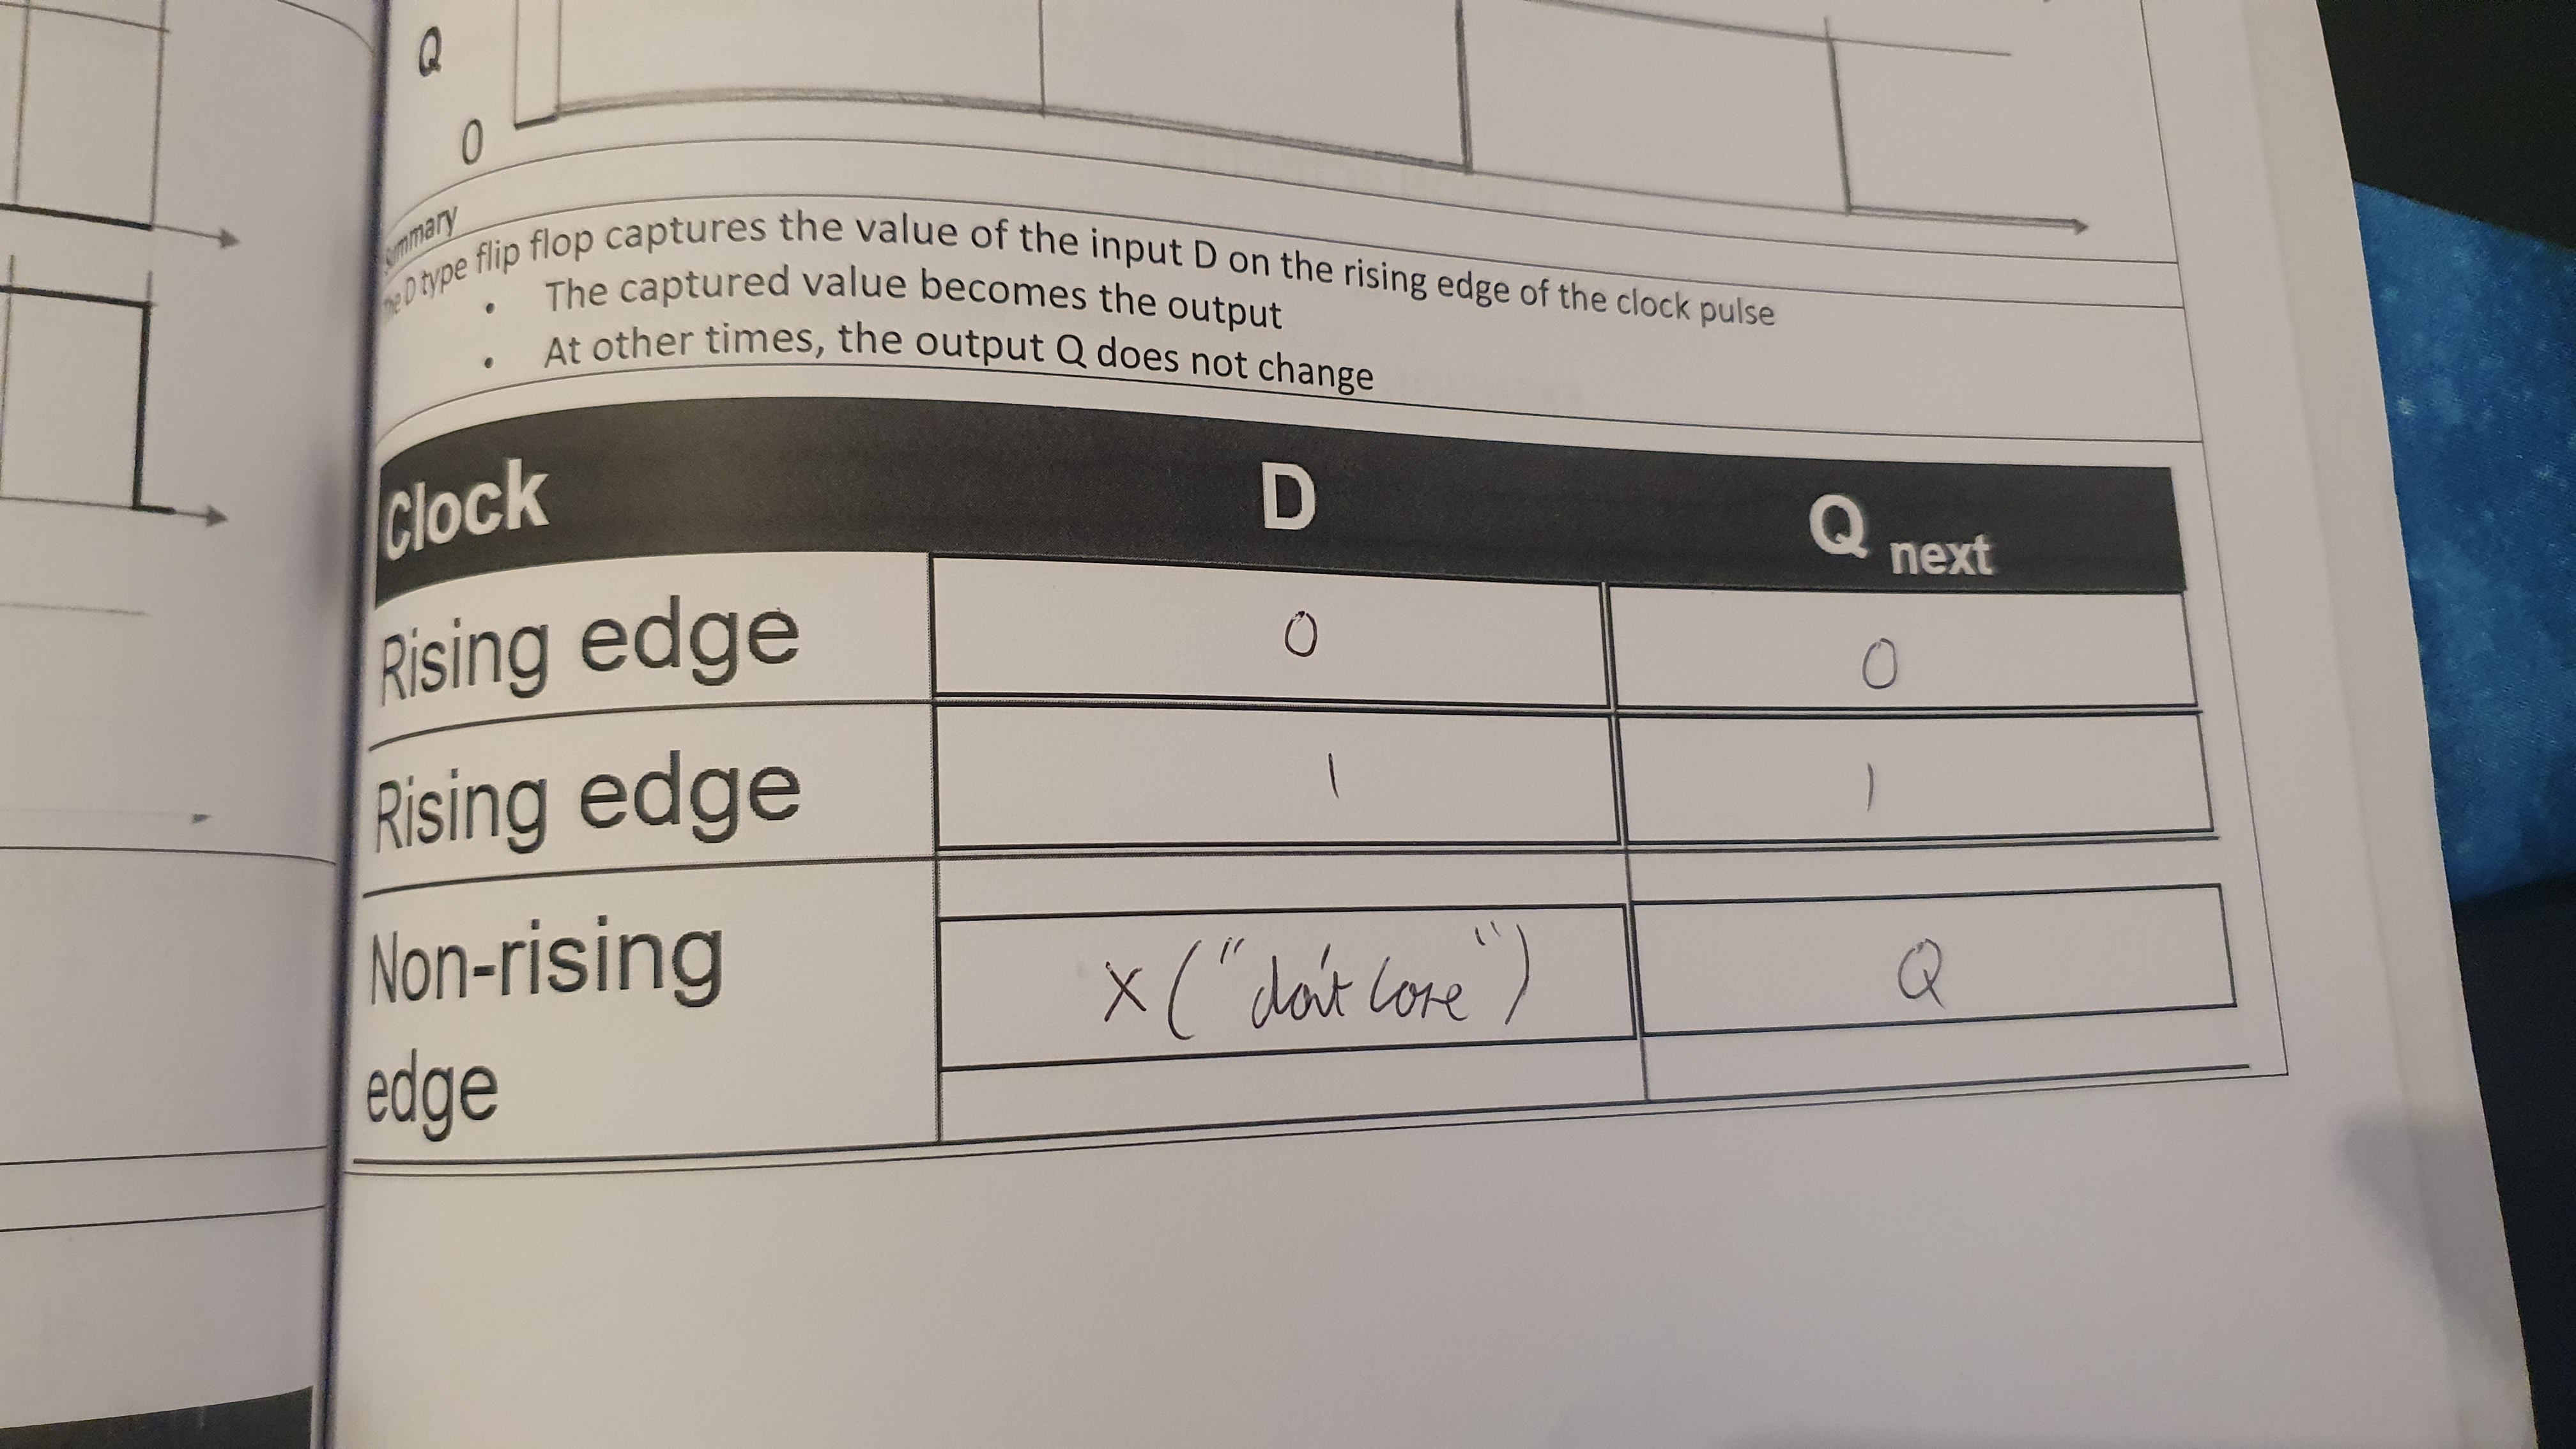 Q
0
Summary
The D type flip flop captures the value of the input D on the rising edge of the clock pulse
• The captured value becomes the output
• At other times, the output Q does not change
Clock D Q next
Rising edge 0 0
Rising edge 1 1
Non-rising edge X ("don't care") Q